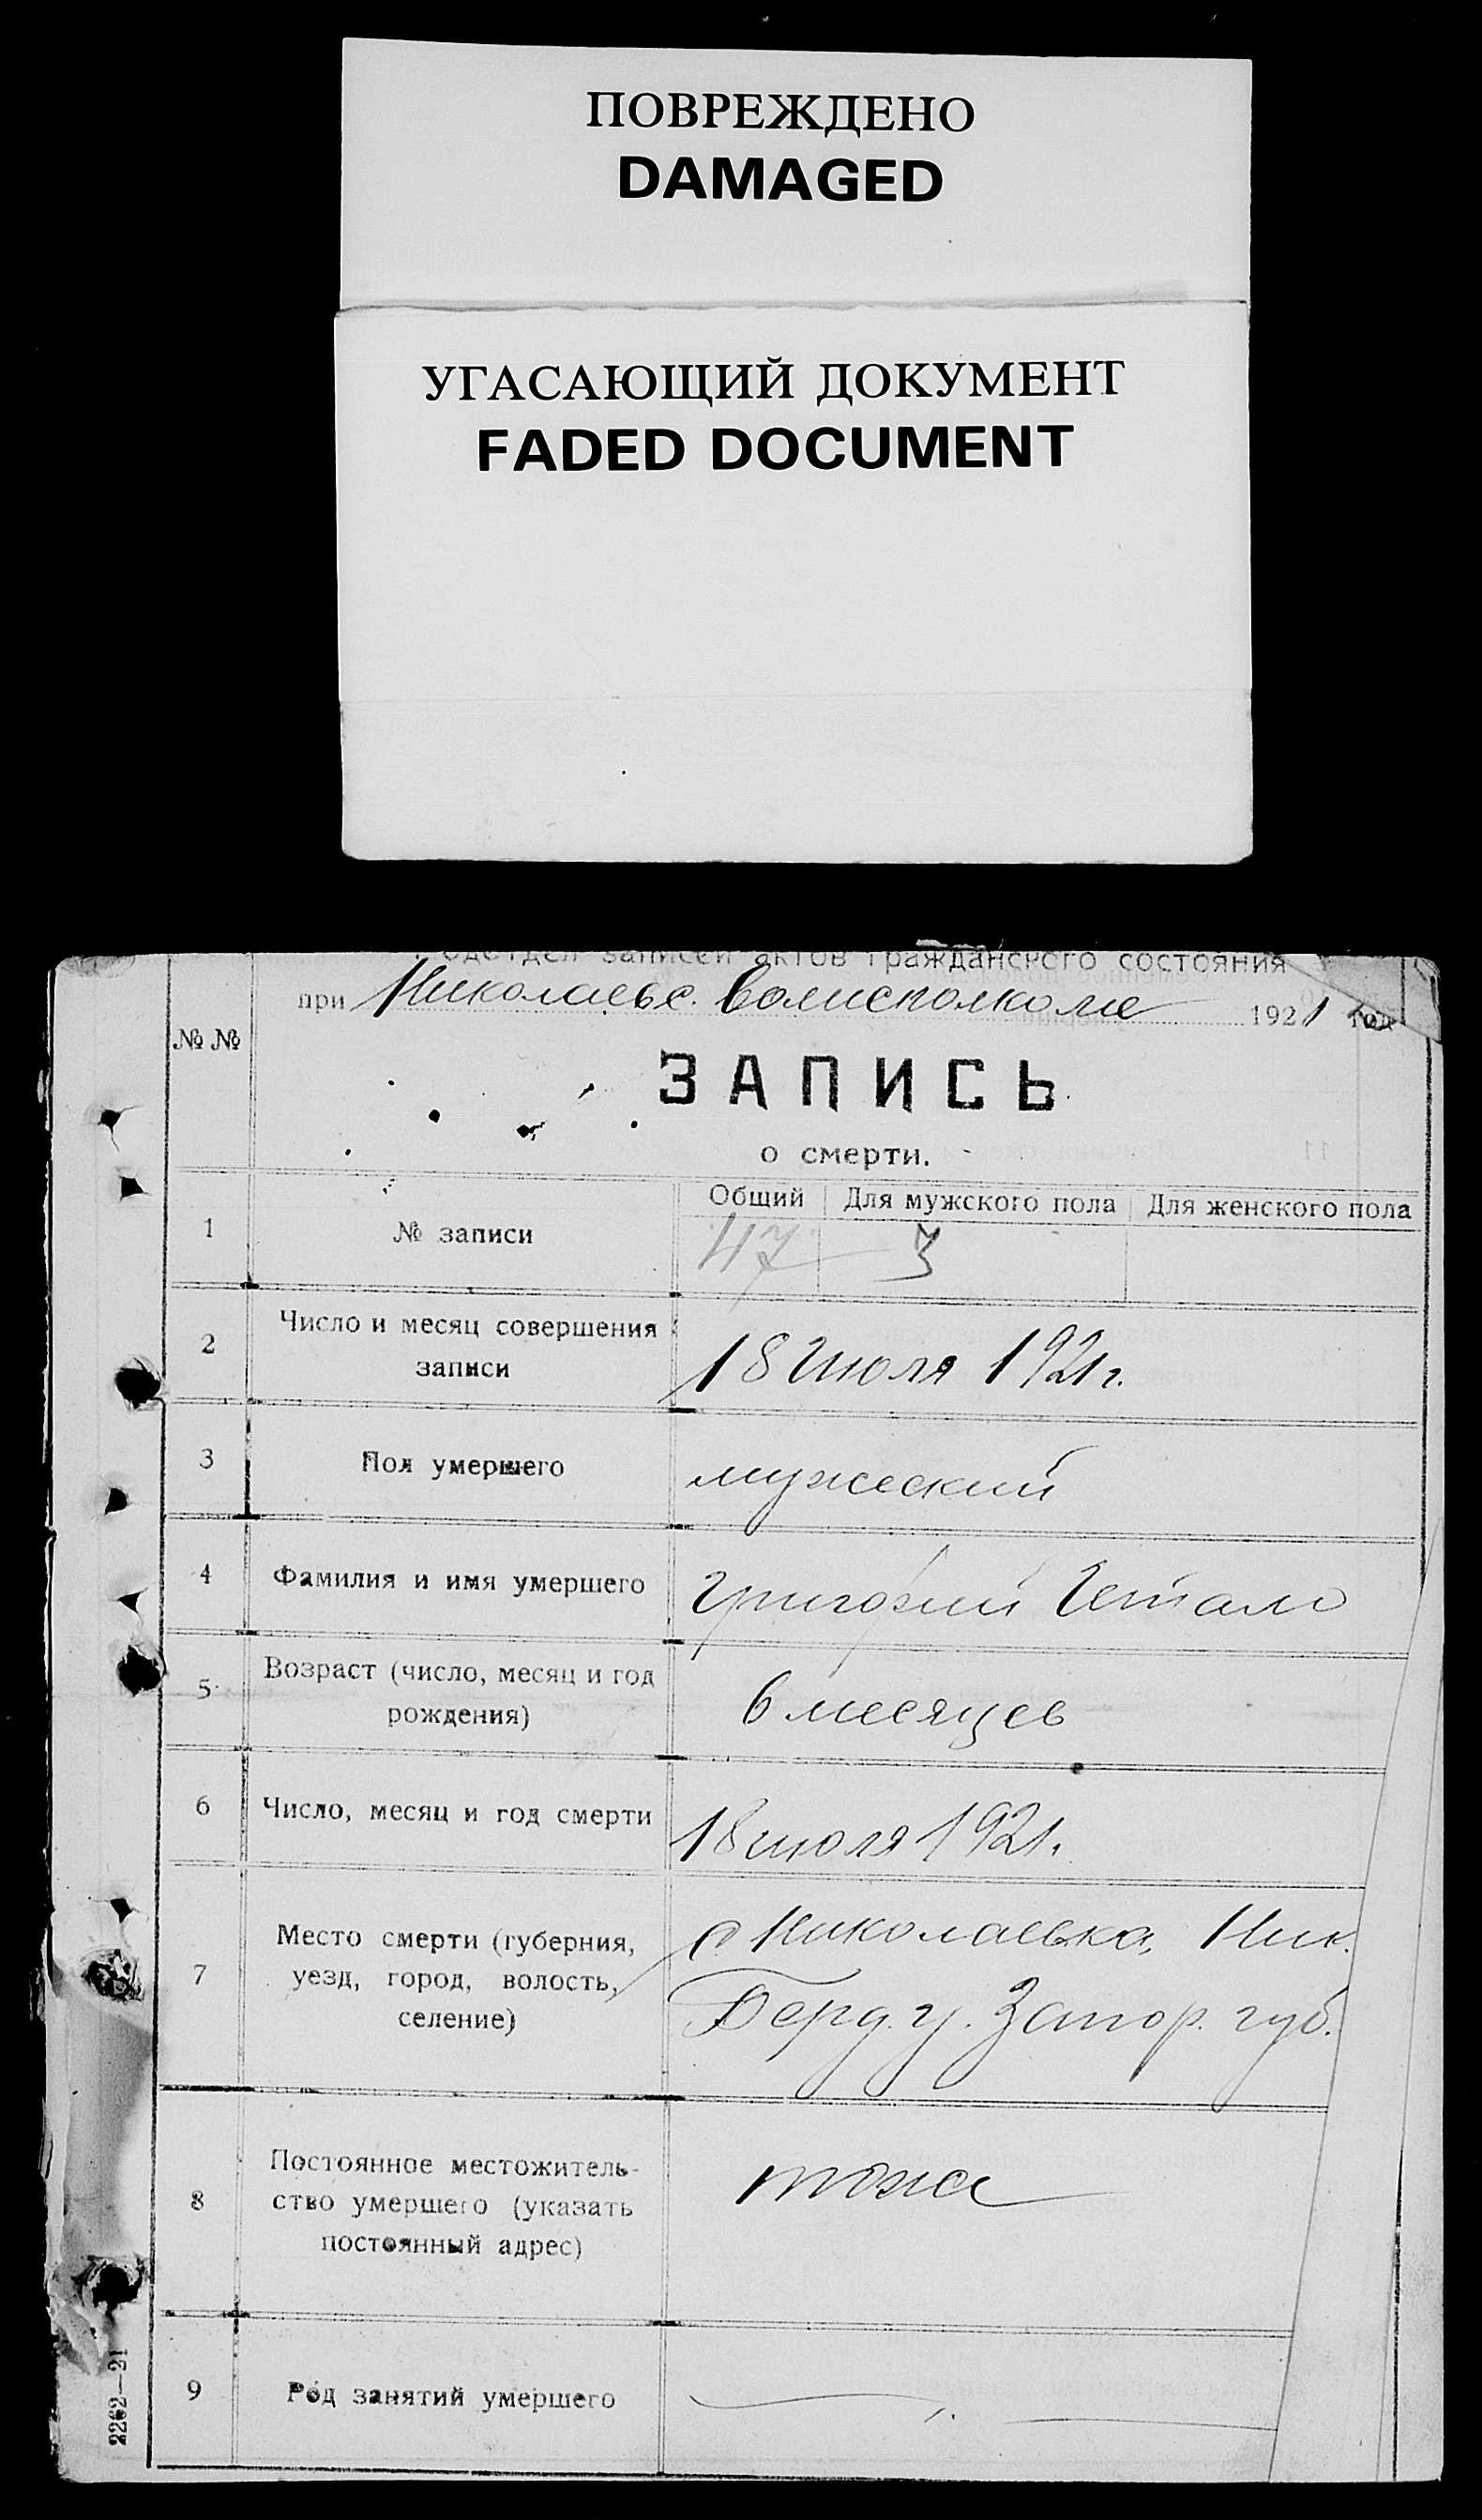 ПОВРЕЖДЕНО
DAMAGED
УГАСАЮЩИЙ ДОКУМЕНТ
FADED DOCUMENT
записей актов гражданского состояния
при Николаевс. волисполкоме 1921 год
№ №
ЗАПИСЬ
о смерти.
Общий Для мужского пола Для женского пола
1 № записи 47 3
2 Число и месяц совершения
записи 18 Июля 1921 г.
3 Пол умершего мужеский
4 Фамилия и имя умершего Григорий
5 Возраст (число, месяц и год
рождения) 6 месяцев
6 Число, месяц и год смерти 18 июля 1921.
7 Место смерти (губерния, с Николаевка, Ник.
уезд, город, волость, Берд. у. Запор. губ.
селение)
8 Постоянное местожитель-
ство умершего (указать тоже
постоянный адрес)
9 Род занятий умершего
2262—21